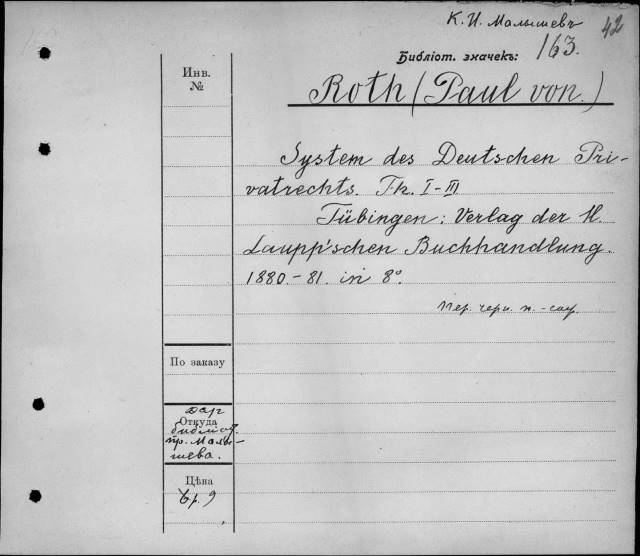 К. И. Малышевъ
42
Библіот. значекъ: 163.
Инв.
№
Roth (Paul von.)
System des Deutschen Pri-
vatrechts. Th. I-III
Tübingen: Verlag der H.
Laupp'schen Buchhandlung.
1880.-81. in 8°.
Пер. черн. к.-
По заказу
Откуда
Дар
библіот.
пр. Малы-
шева.
Цѣна
р. 9